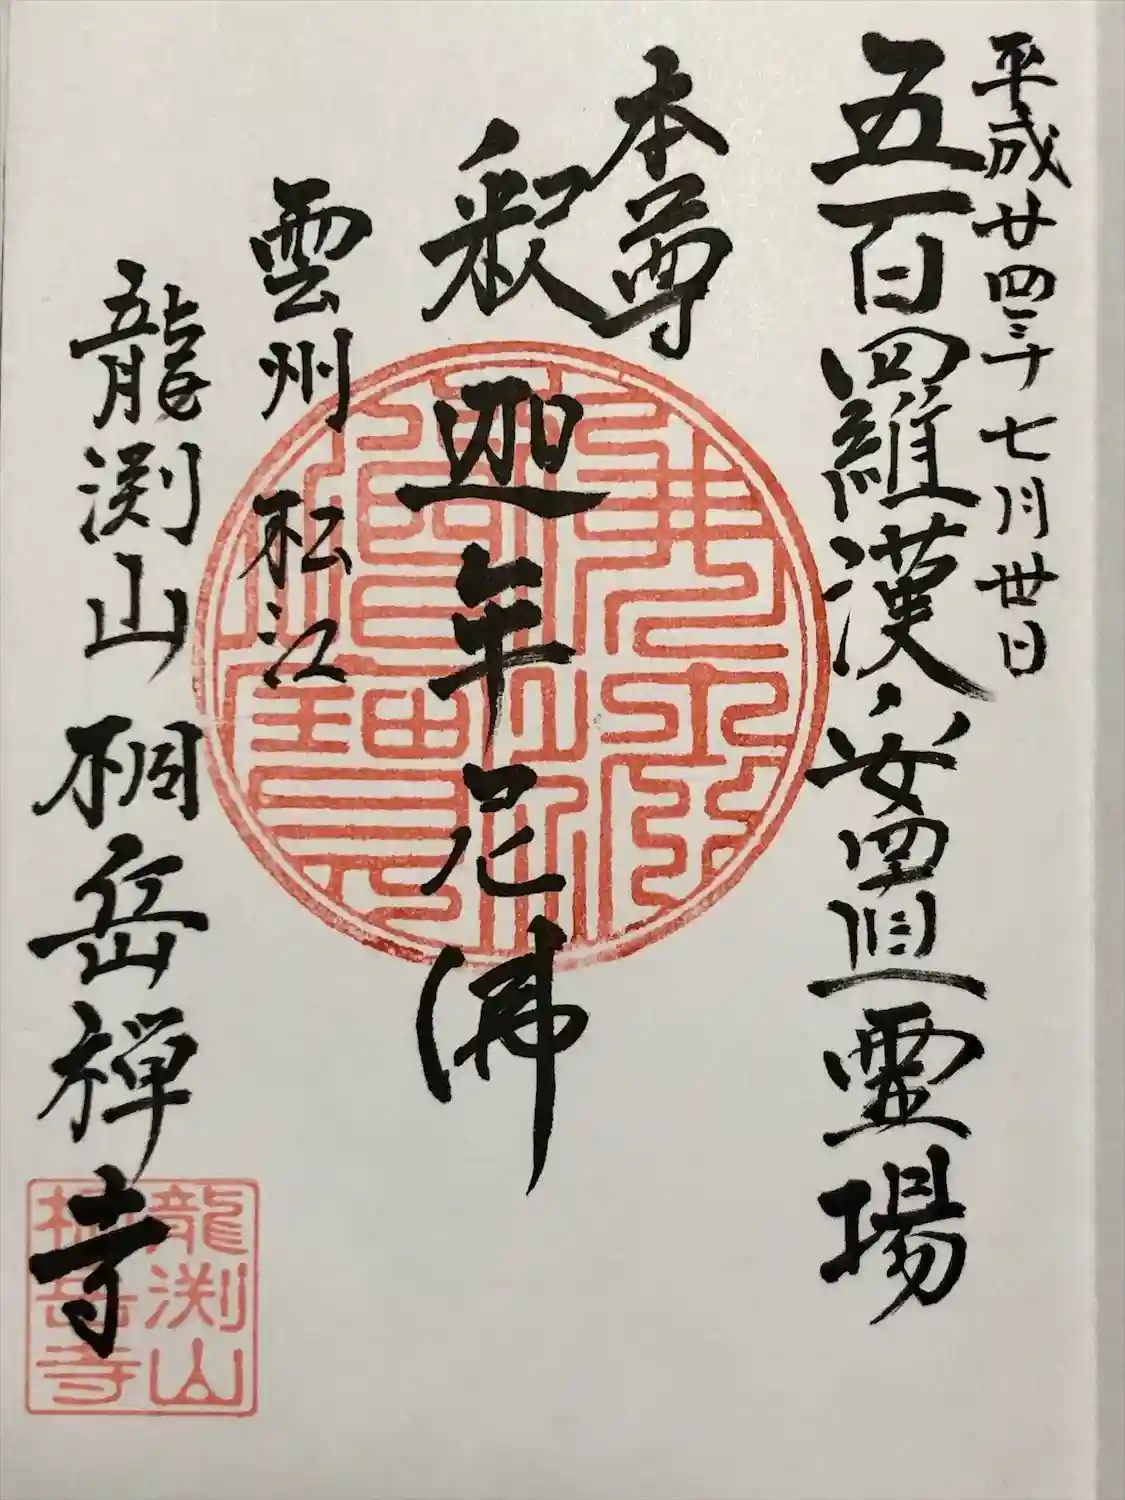 平成廿四年七月卅日
五百羅漢・安置霊場
本尊
釈迦牟尼佛
雲州 松江
龍渊山 桐岳禅寺
龍渊山
桐岳寺